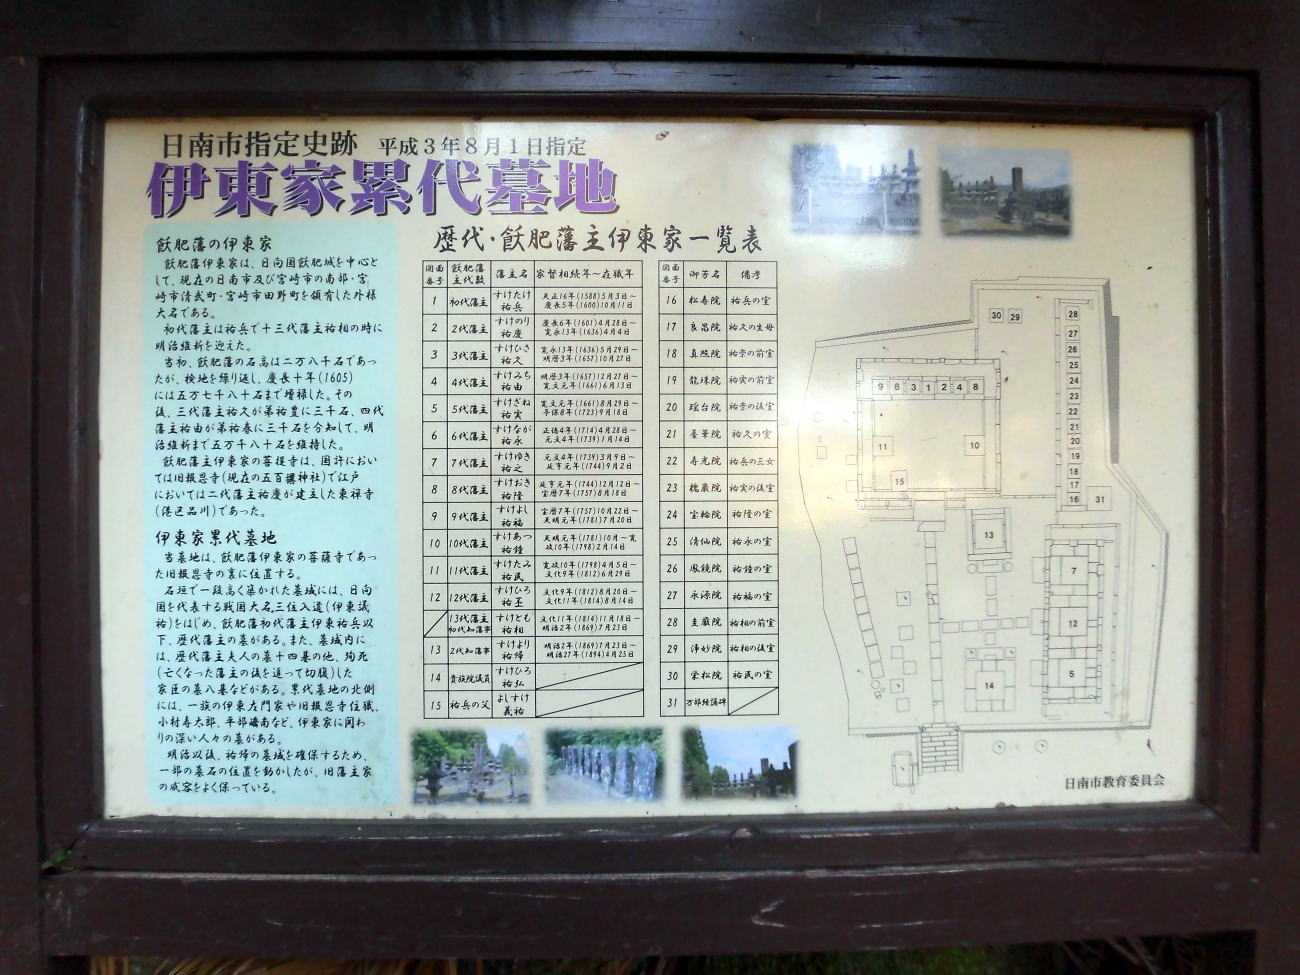 日南市指定史跡 平成3年8月1日指定
伊東家累代墓地
飫肥藩の伊東家
飫肥藩伊東家は、日向国飫肥城を中心と
して、現在の日南市及び宮崎市の南部・宮
崎市清武町・宮崎市田野町を領有した外様
大名である。
初代藩主は祐兵で十三代藩主祐相の時に
明治維新を迎えた。
当初、飫肥藩の石高は二万八千石であっ
たが、検地を繰り返し、慶長十年(1605)
には五万七千八十石まで増様した。その
後、三代藩主祐久が弟祐豊に三千石、四代
藩主祐由が弟祐春に三千石を分知して、明
治維新まで五万千八十石を維持した。
飫肥藩主伊東家の菩提寺は、国許におい
ては旧報恩寺(現在の五百禩神社)で江戸
においては二代藩主祐慶が建立した東禅寺
(港区品川)であった。
伊東家累代墓地
当墓地は、飫肥藩伊東家の菩薩寺であっ
た旧報恩寺の裏に位置する。
石垣で一段高く築かれた墓域には、日向
国を代表する戦国大名三位入道(伊東義
祐)をはじめ、飫肥藩初代藩主伊東祐兵以
下、歴代藩主の墓がある。また、墓域内に
は、歴代藩主夫人の墓十四基の他、殉死
(亡くなった藩主の後を追って切腹)した
家臣の墓八基などがある。累代墓地の北側
には、一族の伊東左門家や旧報恩寺住職、
小村寿太郎、平部嶠南など、伊東家に関わ
りの深い人々の墓がある。
明治以後、祐帰の墓域を確保するため、
一部の墓石の位置を動かしたが、旧藩主家
の威容をよく保っている。
歴代・飫肥藩主伊東家一覧表
図面番号 飫肥藩主代数 藩主名 家督相続年～在職年
1 初代藩主 すけたけ 祐兵 天正16年(1588)5月3日～慶長5年(1600)10月11日
2 2代藩主 すけのり 祐慶 慶長6年(1601)4月28日～寛永13年(1636)4月4日
3 3代藩主 すけひさ 祐久 寛永13年(1636)5月29日～明暦3年(1657)10月27日
4 4代藩主 すけみち 祐由 明暦3年(1657)12月27日～寛文元年(1661)6月13日
5 5代藩主 すけざね 祐実 寛文元年(1661)8月29日～享保8年(1723)9月18日
6 6代藩主 すけなが 祐永 正徳4年(1714)4月28日～元文4年(1739)1月14日
7 7代藩主 すけゆき 祐之 元文4年(1739)3月9日～延享元年(1744)9月2日
8 8代藩主 すけおき 祐隆 延享元年(1744)12月12日～宝暦7年(1757)8月18日
9 9代藩主 すけよし 祐福 宝暦7年(1757)10月22日～天明元年(1781)7月20日
10 10代藩主 すけあつ 祐鐘 天明元年(1781)10月～寛政10年(1798)2月14日
11 11代藩主 すけたみ 祐民 寛政10年(1798)4月5日～文化9年(1812)6月29日
12 12代藩主 すけひろ 祐丕 文化9年(1812)8月12日～文化11年(1814)8月14日
13代藩主 初代知藩事 すけとも 祐相 文化11年(1814)11月18日～明治2年(1869)7月23日
13 2代知藩事 すけより 祐帰 明治2年(1869)7月23日～明治27年(1894)4月25日
14 貴族院議員 すけひろ 祐弘
15 祐兵の父 よしすけ 義祐
図面番号 御芳名 備考
16 松寿院 祐兵の室
17 良昌院 祐久の生母
18 真照院 祐崇の前室
19 龍珠院 祐実の前室
20 瑶台院 祐崇の後室
21 養華院 祐久の室
22 寿光院 祐兵の三女
23  巌院 祐実の後室
24 宝輪院 祐隆の室
25 清仙院 祐永の室
26 鳳鏡院 祐鐘の室
27 永源院 祐福の室
28 圭巌院 祐相の前室
29 浄妙院 祐相の後室
30 栄松院 祐民の室
31 万部経誦碑
30 29
28
27
26
25
24
23
22
21
20
19
18
17
16 31
9 6 3 1 2 4 8
11 10
15
13
7
12
5
14
日南市教育委員会